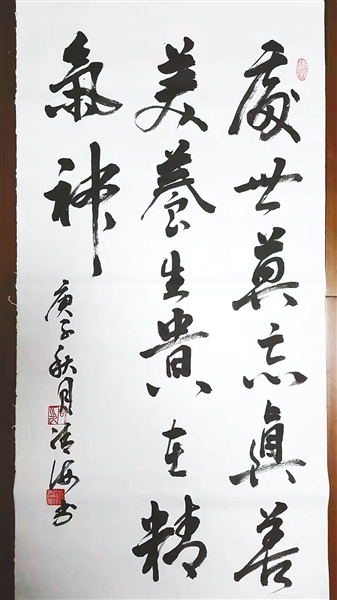 處世莫忘眞善
美養生貴在精
氣神
庚子秋月海书